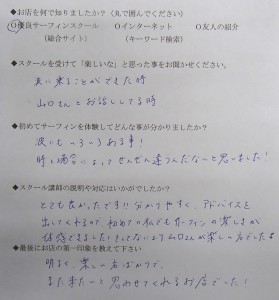 ◆お店を何で知りましたか？（丸で囲んでください）
○優良サーフィンスクール　○インターネット　○友人の紹介
（総合サイト）　（キーワード検索）
◆スクールを受けて「楽しいな」と思った事をお聞かせください。
立山さんとお話ししてる時
◆初めてサーフィンを体験してどんな事が分かりましたか？
波にもいろいろある事！
時と場合によってぜんぜん違うんだなーと思いました！
◆スクール講師の説明や対応はいかがでしたか？
とても良かったです!! 分かりやすく、アドバイスを
出してくれるので、初めての私でもサーフィンの楽しさが
体感できました！そしてなにより
◆最後にお店の第一印象を教えて下さい
明るく、楽しい店
また来たーと思わせてくれるお店でした！